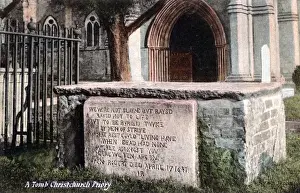 WE WERE NOT SLAYNE BUT RAYSD
RAYSD NOT TO LIFE
BUT TO BE BURIED TWICE
BY MEN OF STRIFE
WHAT REST COULD LIVING HAVE
WHEN DEAD HAD NONE
AGREE AMONGST
HERE WE TEN ARE ONE
DIED APRIL 17 1641
A Tomb Christchurch Priory